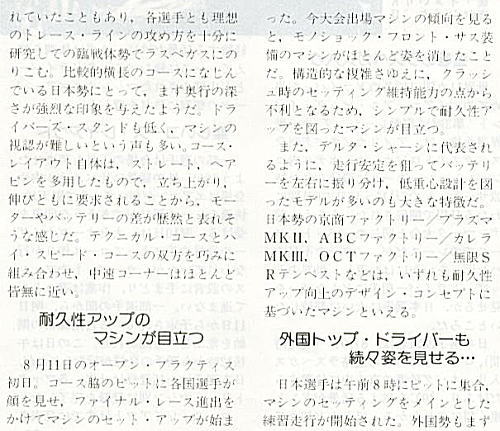 れていたこともあり、各選手とも理想
のトレース・ラインの攻め方を十分に
研究しての臨戦体勢でラスベガスにの
りこむ。比較的横長のコースになじん
でいる日本勢にとって、まず奥行の深
さが強烈な印象を与えたようだ。ドラ
イバーズ・スタンドも低く、マシンの
視認が難しいという声も多い。コース・
レイアウト自体は、ストレート、ヘア
ピンを多用したもので、立ち上がり、
伸びともに要求されることから、モー
ターやバッテリーの差が歴然と表れそ
うな感じだ。テクニカル・コースとハ
イ・スピード・コースの双方を巧みに
組み合わせ、中速コーナーはほとんど
皆無に近い。
耐久性アップの
マシンが目立つ
8月11日のオープン・プラクティス
初日。コース脇のピットに各国選手が
顔を見せ、ファイナル・レース進出を
かけてマシンのセット・アップが始ま
った。今大会出場マシンの傾向を見る
と、モノショック・フロント・サス装
備のマシンがほとんど姿を消したこと
だ。構造的な複雑さゆえに、クラッシ
ュ時のセッティング維持能力の点から
不利となるため、シンプルで耐久性ア
ップを図ったマシンが目立つ。
また、デルタ・シャーシに代表され
るように、走行安定を狙ってバッテリ
ーを左右に振り分け、低重心設計を図
ったモデルが多いのも大きな特徴だ。
日本勢の京商ファクトリー/プラズマ
MKⅡ、ABCファクトリー/カレラ
MKⅢ、OCTファクトリー/無限S
Rテンペストなどは、いずれも耐久性
アップ向上のデザイン・コンセプトに
基づいたマシンといえる。
外国トップ・ドライバーも
続々姿を見せる…
日本選手は午前8時にピットに集合、
マシンのセッティングをメインとした
練習走行が開始された。外国勢もまず